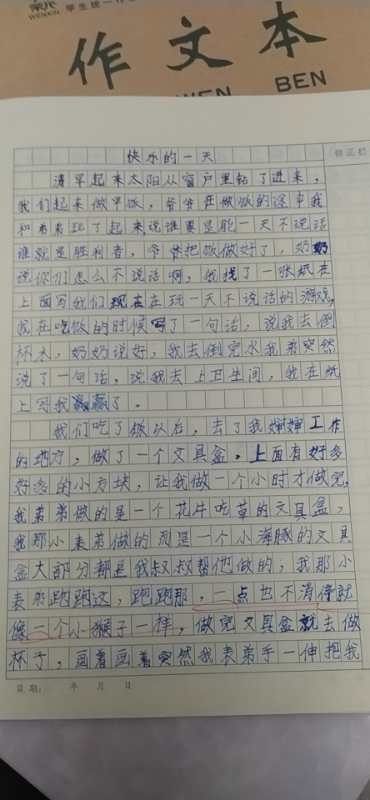 学生统一作
作文本
WEN BEN
修正栏
快乐的一天
清早起来太阳从窗户里钻了进来，
我们起来做早饭，爷爷在做饭的途中我
和弟弟玩了起来说谁要是能一天不说话
谁就是胜利者，爷爷把饭做好了，奶奶
说你们怎么不说话啊，我找了一张纸在
上面写我们现在在玩一天不说话的游戏，
我在吃饭的时候写了一句话，说我去倒
杯水，奶奶说好，我去倒完水我弟突然
说了一句话，说我去上卫生间，我在纸
上写我赢了。
我们吃了饭以后，去了我婶婶工作
的地方，做了一个文具盒，上面有好多
好多的小方块，让我做一个小时才做完，
我弟弟做的是一个花牛吃草的文具盒，
我那小表弟做的则是一个小海豚的文具
盒大部分都是我叔叔帮他做的，我那小
表弟跑跑这，跑跑那，一点也不消停就
像一个小猴子一样，做完文具盒就去做
杯子，画着画着突然我表弟手一伸把我
日期： 年 月 日